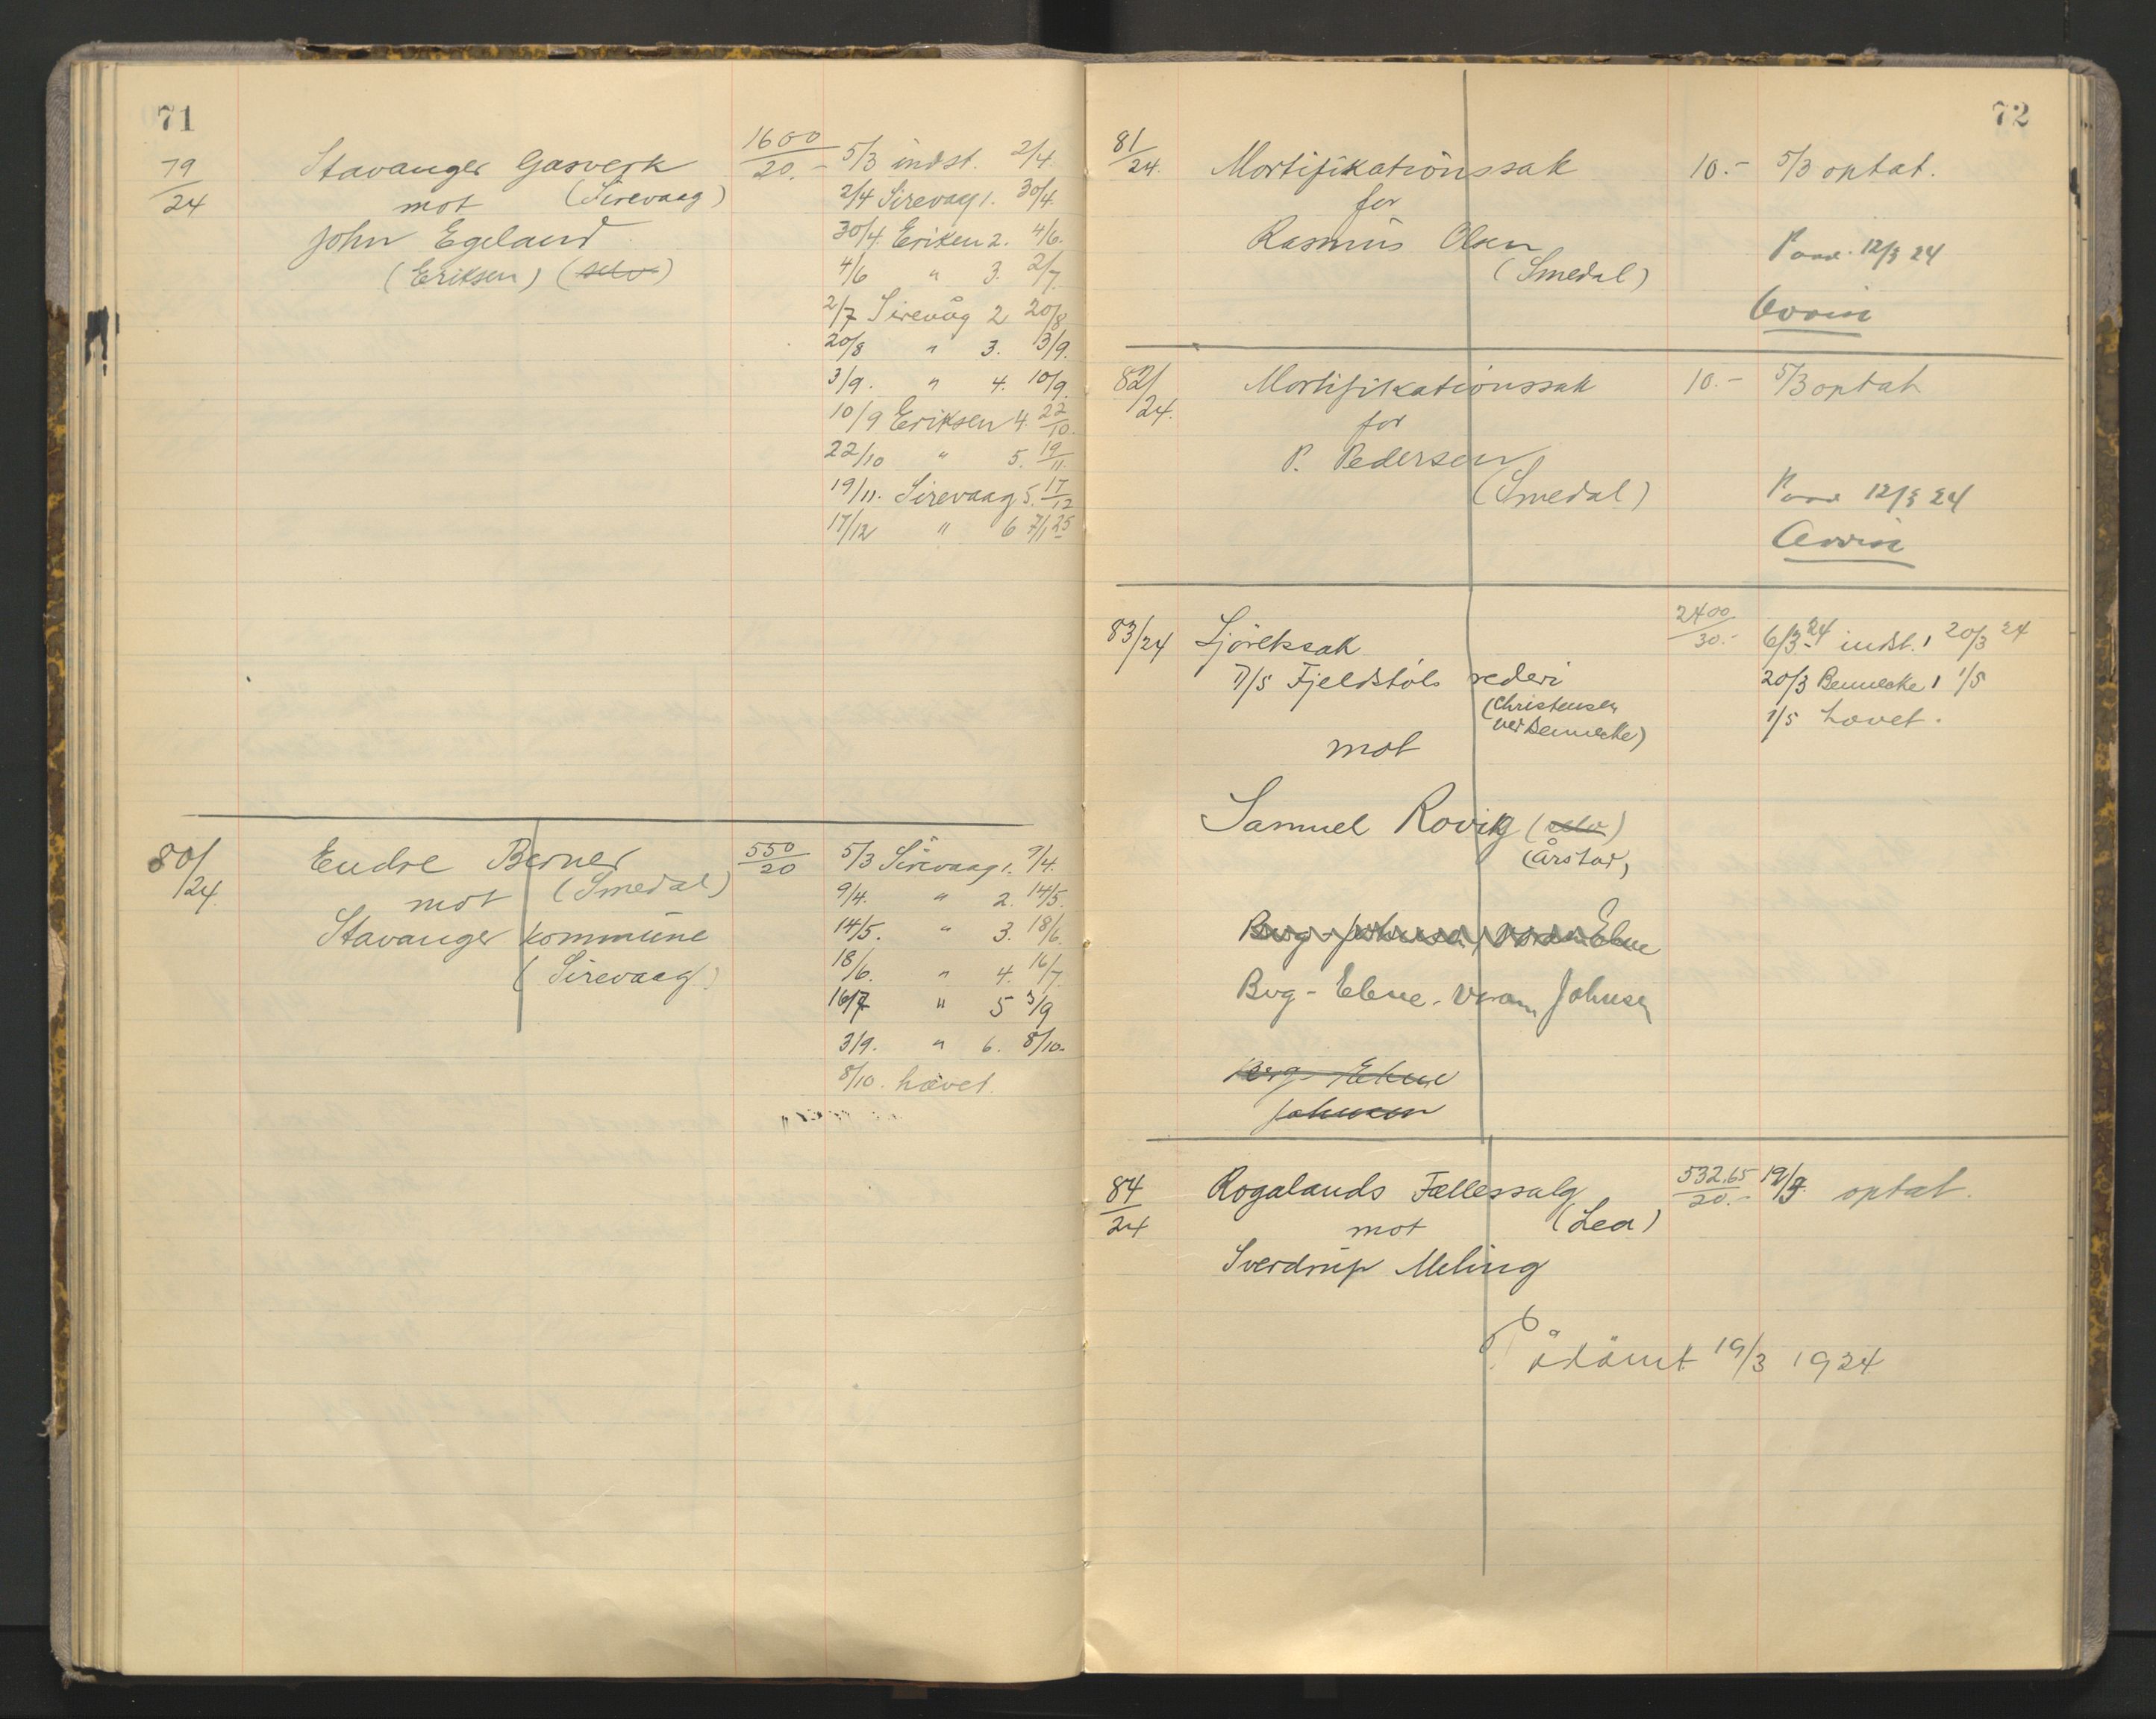 71
79/24 Stavanger Gasverk 1600/20.- 5/3 indst. 2/4.
mot (Sirevaag) 2/4 Sirevaag 1. 30/4.
John Egeland 30/4. Eriken 2. 4/6.
(Eriksen) (selv) 4/6 " 3. 2/7.
2/7 Sirevåg 2 20/8
20/8 " 3. 3/9.
3/9. " 4. 10/9.
10/9 Eriksen 4. 22/10.
22/10 " 5. 19/11.
19/11. Sirevaag 5. 17/12
17/12 " 6 7/1 25
80/24. Endre Berner 550/20 5/3 Sirevaag 1. 9/4.
mot (Smedal) 9/4. " 2. 14/5.
Stavanger kommune 14/5. " 3. 18/6.
(Sirevaag) 18/6. " 4. 16/7.
16/7 " 5 3/9
3/9. " 6. 8/10.
8/10. hævet.
72
81/24. Mortifikationssak 10.- 5/3 optat.
for
Rasmus Olsen 12/3 24
(Smedal)
82/24. Mortifikationssak 10.- 5/3 optat
for
P. Pedersen
(Smedal) 12/3 24
83/24 Sjöretssak 2400/30.- 6/3.24 indst. 1 20/3 24
Fjeldstøls rederi 20/3 Bennecke 1 1/5
(Christensen
ved Bennecke) 1/5 hævet.
mot
Samuel Rovik (selv)
(Årstad)
Bvg - Elene - Johnsen
Johnsen
84/24 Rogalands Fællessalg 532.65/20.- 19/3 optat.
mot (Lea)
Sverdrup Meling
Pådömt 19/3 1924